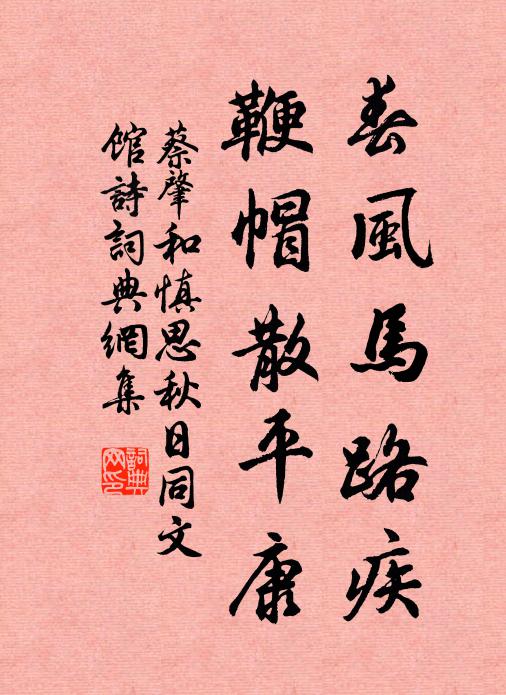 春風馬路疾
鞭帽散平康
蔡肇和慎思秋日同文
館詩詞典網集
詞典网印